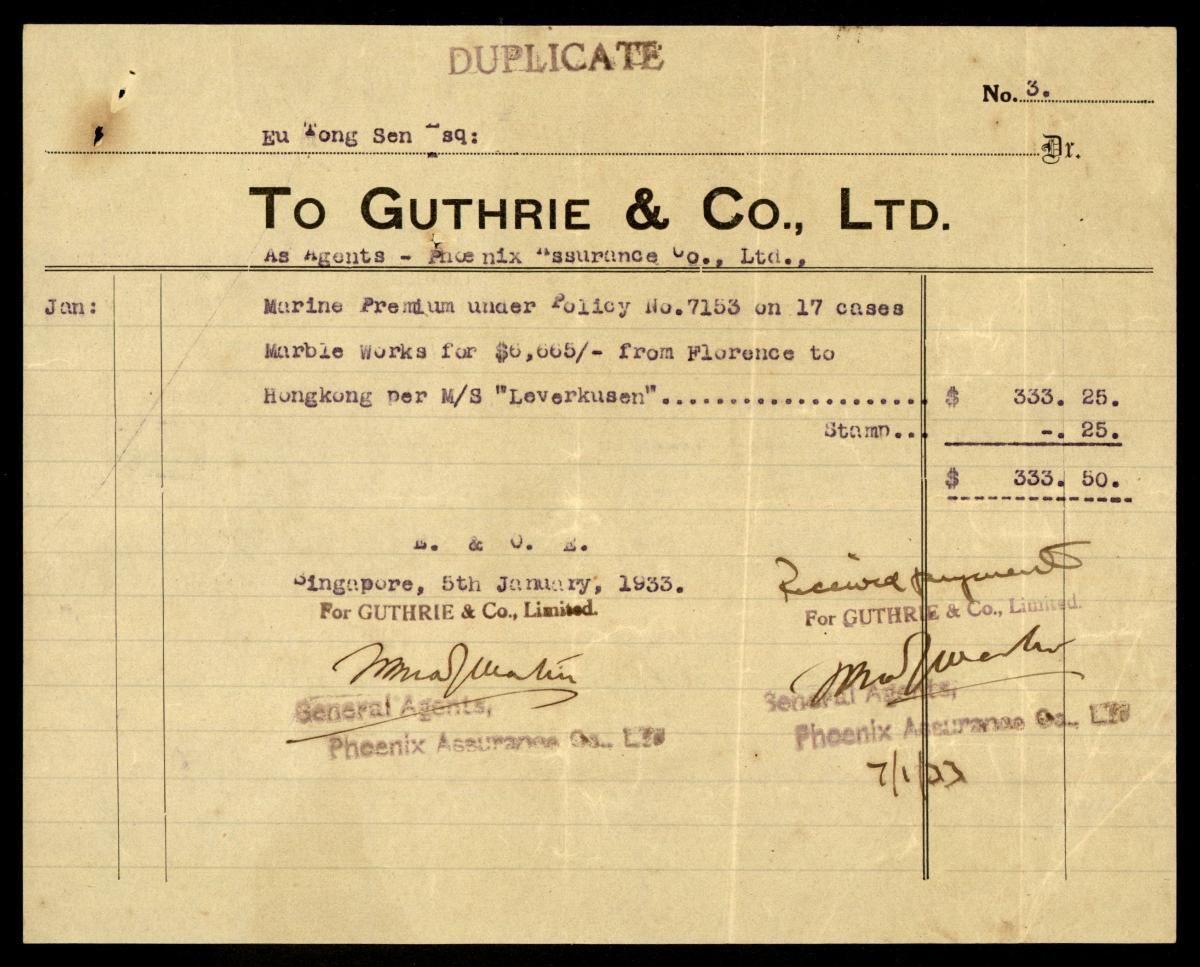 DUPLICATE
No. 3.
Eu Tong Sen Esq:
Dr.
TO GUTHRIE & CO., LTD.
As Agents - Phoenix Assurance Co., Ltd.,
Jan: Marine Premium under Policy No.7153 on 17 cases
Marble Works for $6,665/- from Florence to
Hongkong per M/S "Leverkusen"..................... $ 333. 25.
Stamp... -. 25.
$ 333. 50.
E. & O. E.
Singapore, 5th January, 1933.
For GUTHRIE & Co., Limited.
General Agents,
Phoenix Assurance Co., LTD
Received payment
For GUTHRIE & Co., Limited.
General Agents,
Phoenix Assurance Co., LTD
7/1/33